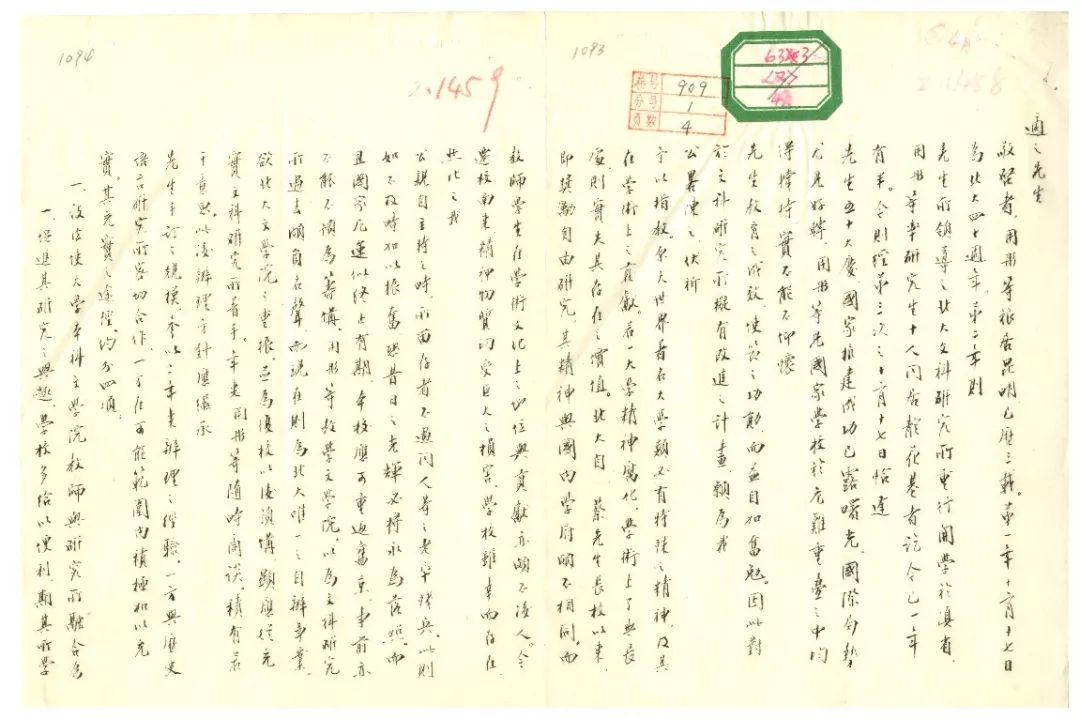 1094
1093
2.1459
2.1458
卷号 909
分号 1
页数 4
適之先生
敬啓者，用彤等旅居昆明已歷三載。第一年十二月十七日
為北大四十週年。第二年則
先生所領導之北大文科研究所重行開學於滇省，
用彤等率研究生十人同居龍花巷者迄今已一年
有半。今則經第三次之十二月十七日恰逢
先生五十大慶，國家抗建成功已露曙光，國際局勢
尤見好轉，用彤等見國家學校於危難重疊之中均
得維持，實不能不仰懷
先生教育之成效，建築之功勛而益自加奮勉。因此對
於文科研究所擬有改進之計畫，願為我
公畧陳之，伏祈
予以指教。原大世界著名大學類必有特殊之精神及其
在學術上之貢獻。若一大學精神腐化，學術上了無長
處，則實失其存在之價值。北大自 蔡先生長校以來，
即奬勵自由研究，其精神與國內學府頗不相同，而
教師學生在學術文化上之地位與貢獻亦頗不後人。今
遷校南來，精神物質均受巨大之損害，學校雖幸而存在，
然比之我
公親自主持之時，所留存者不過同人等之老卒殘兵。此則
如不及時加以振奮，恐昔日之光輝必將永為落照。而
且國家厄運似終止有期，本校應可重返舊京，事前亦
不能不預為籌備。用彤等教學文學院，以為文科研究
所過去頗負名聲，而現在則為北大唯一之自辦事業，
欲北大文學院之重振，並為復校以後預備，顯應從充
實文科研究所著手。年來用彤等隨時商談，積有若
干意思。以後辦理方針應繼承
先生手訂之規模，參以二年來辦理之經驗，一方與歷史
語言研究所密切合作，一方在可能範圍內積極加以充
實。其充實之途徑，約分四項。
一、設法使大學本科文學院教師與研究所融合為
一，促進其研究之興趣，學校多給以便利，期其所學